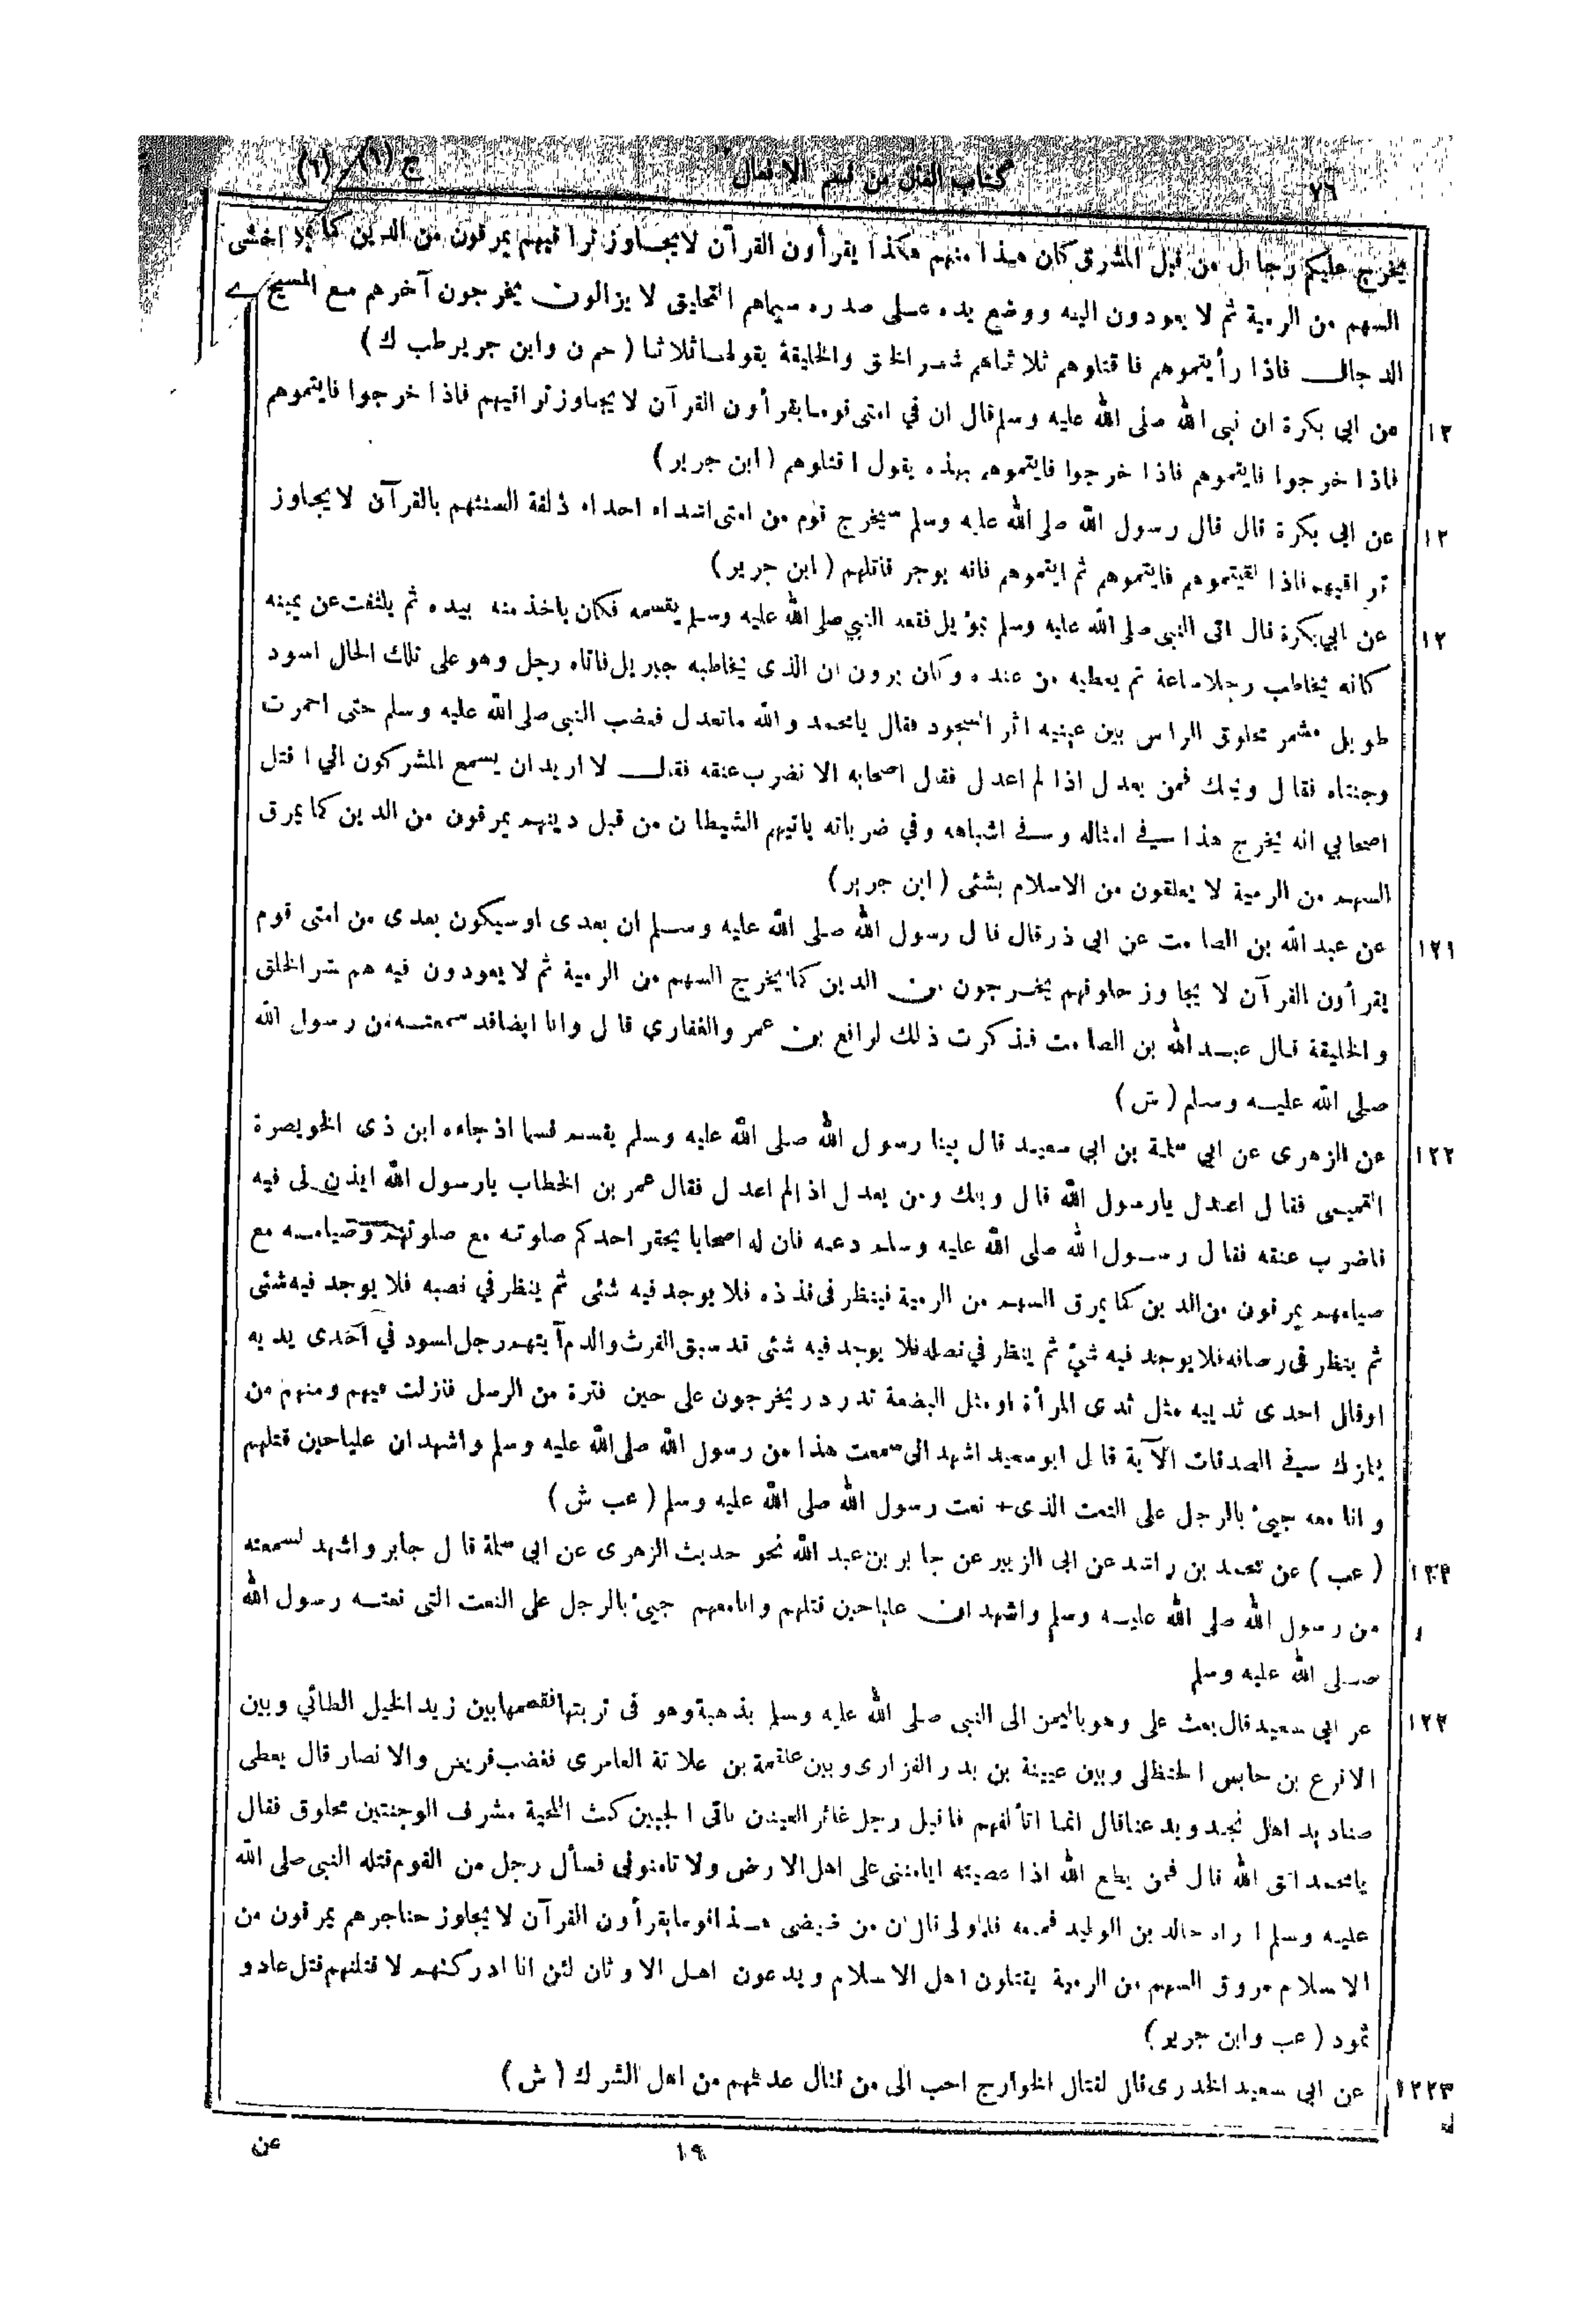 ٧٦ كتاب الفتن من قسم الافعال ج (٦)
يخرج عليكم رجال من قبل المشرق كان هذا منهم هكذا يقرأون القرآن لايجاوز تراقيهم يمرقون من الدين كما
السهم من الرمية ثم لا يعودون اليه ووضع يده على صدره سيماهم التحليق لا يزالون يخرجون آخرهم مع المسيح
الدجال فاذا رأيتموهم فاقتلوهم ثلاثاهم شر الخلق والخليقة يقولها ثلاثا (حم ن وابن جرير طب ك)
١٢ عن ابي بكرة ان نبى الله صلى الله عليه وسلم قال ان في امتى قوما يقرأون القرآن لا يجاوز تراقيهم فاذا خرجوا فايتموهم
فاذا خرجوا فايتموهم فاذا خرجوا فايتموهم بهذه يقول اقتلوهم (ابن جرير)
١٢ عن ابى بكرة قال قال رسول الله صلى الله عليه وسلم سيخرج قوم من امتى اشداء احداء ذلقة السنتهم بالقرآن لايجاوز
تراقيهم فاذا لقيتموهم فايتموهم ثم ايتموهم فانه يوجر قاتلهم (ابن جرير)
١٢ عن ابي بكرة قال اتى النبى صلى الله عليه وسلم بمويل فقعد النبي صلى الله عليه وسلم يقسمه فكان ياخذ منه بيده ثم يلتفت عن يمينه
كانه يخاطب رجلا ساعة ثم يعطيه من عنده وكان يرون ان الذى يخاطبه جبريل فاتاه رجل وهو على تلك الحال اسود
طويل مشمر محلوق الراس بين عينيه اثر السجود فقال يامحمد والله ماتعدل فغضب النبى صلى الله عليه وسلم حتى احمرت
وجنتاه فقال ويحك فمن يعدل اذا لم اعدل فقال اصحابه الا نضرب عنقه فقال لا اريد ان يسمع المشركون اني اقتل
اصحابي انه يخرج هذا في امثاله وفي اشباهه وفي ضربائه ياتيهم الشيطان من قبل دينهم يمرقون من الدين كما يمرق
السهم من الرمية لا يعلقون من الاسلام بشئى (ابن جرير)
١٢١ عن عبد الله بن الصامت عن ابى ذر قال قال رسول الله صلى الله عليه وسلم ان بعدى او سيكون بعدى من امتى قوم
يقرأون القرآن لا يجاوز حلوقهم يخرجون من الدين كما يخرج السهم من الرمية ثم لا يعودون فيه هم شر الخلق
والخليقة قال عبد الله بن الصامت فذكرت ذلك لرافع بن عمرو الغفارى قال وانا ايضا قد سمعته من رسول الله
صلى الله عليه وسلم (ش)
١٢٢ عن الزهرى عن ابي سلمة بن ابي سعيد قال بينا رسول الله صلى الله عليه وسلم يقسم قسما اذ جاءه ابن ذى الخويصرة
التميمى فقال اعدل يارسول الله قال ويلك ومن يعدل اذا لم اعدل فقال عمر بن الخطاب يارسول الله ايذن لى فيه
فاضرب عنقه فقال رسول الله صلى الله عليه وسلم دعه فان له اصحابا يحقر احدكم صلوته مع صلوتهم وصيامه مع
صيامهم يمرقون من الدين كما يمرق السهم من الرمية فينظر فى قذذه فلا يوجد فيه شئى ثم ينظر في نصبه فلا يوجد فيه شئى
ثم ينظر فى رصافه فلا يوجد فيه شيء ثم ينظر في نصله فلا يوجد فيه شئى قد سبق الفرث والدم آيتهم رجل اسود في احدى يديه
او قال احدى ثدييه مثل ثدى المرأة او مثل البضعة تدردر يخرجون على حين فترة من الرسل فنزلت فيهم ومنهم من
يلمزك في الصدقات الآية قال ابو سعيد اشهد انى سمعت هذا من رسول الله صلى الله عليه وسلم واشهد ان عليا حين قتلهم
وانا معه جيئ بالرجل على النعت الذى نعت رسول الله صلى الله عليه وسلم (عب ش)
(عب) عن محمد بن راشد عن ابى الزبير عن جابر بن عبد الله نحو حديث الزهرى عن ابى سلمة قال جابر واشهد لسمعته
من رسول الله صلى الله عليه وسلم واشهد ان عليا حين قتلهم وانا معهم جيئ بالرجل على النعت التى نعته رسول الله
صلى الله عليه وسلم
١٢٢ عن ابي سعيد قال بعث على وهو باليمن الى النبى صلى الله عليه وسلم بذهبة وهو فى تربتها فقسمها بين زيد الخيل الطائي وبين
الاقرع بن حابس الحنظلى وبين عيينة بن بدر الفزارى وبين علقمة بن علاثة العامرى فغضب قريش والانصار قال يعطى
صناديد اهل نجد ويدعنا قال انما اتألفهم فاقبل رجل غائر العينين ناتى الجبين كث اللحية مشرف الوجنتين محلوق فقال
يامحمد اتق الله قال فمن يطع الله اذا عصيته ايامننى على اهل الارض ولا تامنونى فسأل رجل من القوم قتله النبى صلى الله
عليه وسلم اراه خالد بن الوليد فمنعه فلما ولى قال ان من ضئضى هذا قوما يقرأون القرآن لا يجاوز حناجرهم يمرقون من
الاسلام مروق السهم من الرمية يقتلون اهل الاسلام ويدعون اهل الاوثان لئن انا ادركتهم لاقتلنهم قتل عاد و
ثمود (عب وابن جرير)
١٢٢٣ عن ابي سعيد الخدرى قال لقتال الخوارج احب الى من قتال عدتهم من اهل الشرك (ش)
١٩ عن